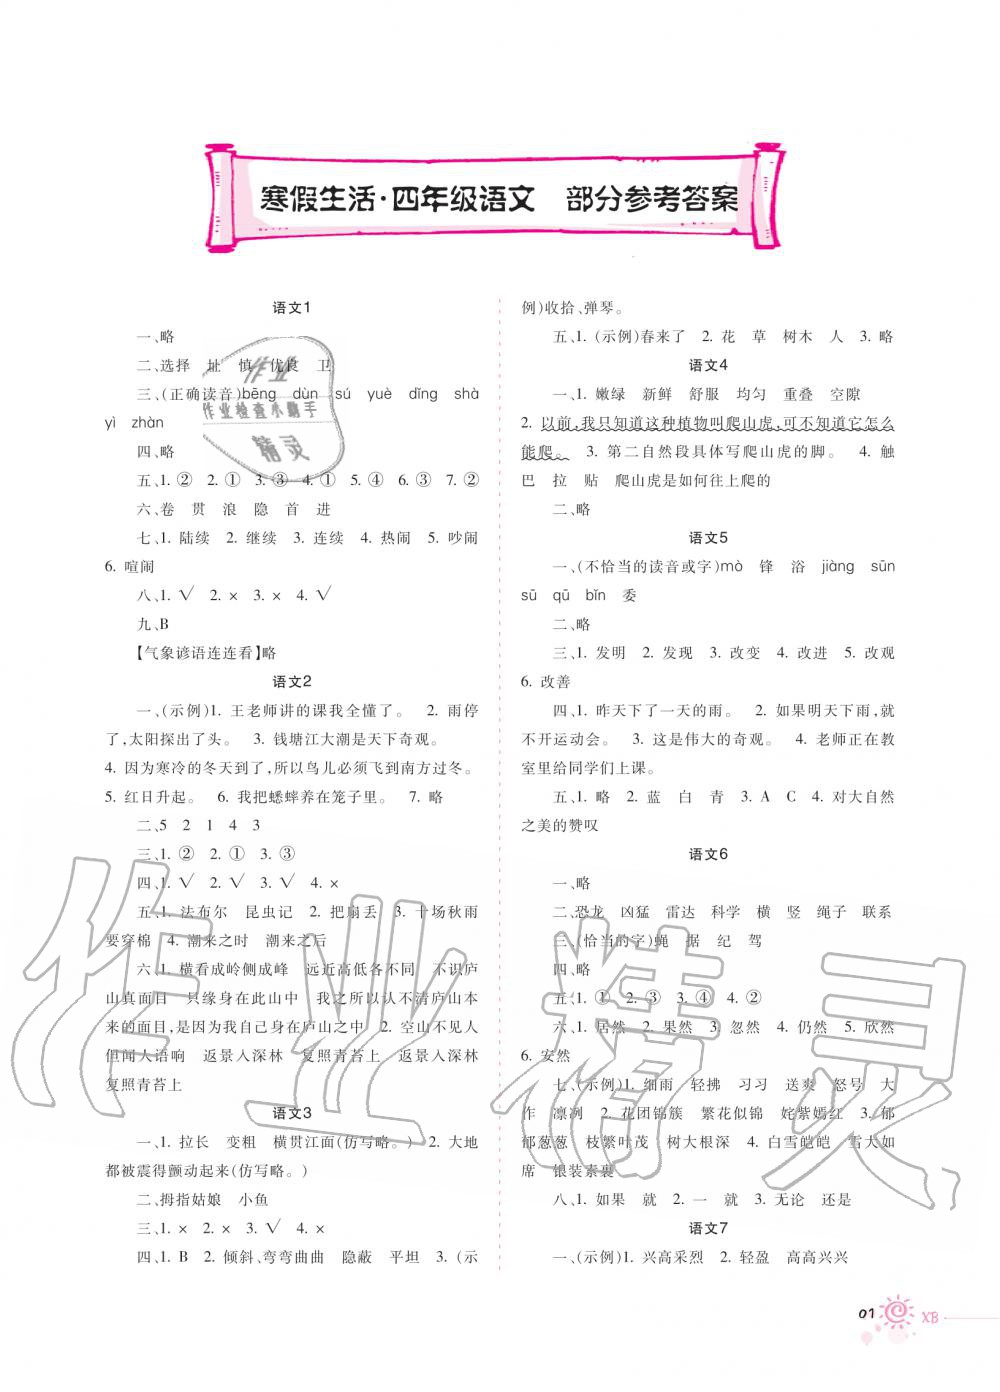 寒假生活·四年级语文 部分参考答案
语文1
一、略
二、选择 址 慎 优良 卫
三、(正确读音)bēng dùn sú yuè dǐng shà
yì zhàn
四、略
五、1. ② 2. ① 3. ③ 4. ① 5. ④ 6. ③ 7. ②
六、卷 贯 浪 隐 首 进
七、1. 陆续 2. 继续 3. 连续 4. 热闹 5. 吵闹
6. 喧闹
八、1. √ 2. × 3. × 4. √
九、B
【气象谚语连连看】略
语文2
一、(示例)1. 王老师讲的课我全懂了。 2. 雨停
了,太阳探出了头。 3. 钱塘江大潮是天下奇观。
4. 因为寒冷的冬天到了,所以鸟儿必须飞到南方过冬。
5. 红日升起。 6. 我把蟋蟀养在笼子里。 7. 略
二、5 2 1 4 3
三、1. ② 2. ① 3. ③
四、1. √ 2. √ 3. √ 4. ×
五、1. 法布尔 昆虫记 2. 把扇丢 3. 十场秋雨
要穿棉 4. 潮来之时 潮来之后
六、1. 横看成岭侧成峰 远近高低各不同 不识庐
山真面目 只缘身在此山中 我之所以认不清庐山本
来的面目,是因为我自己身在庐山之中 2. 空山不见人
但闻人语响 返景入深林 复照青苔上 返景入深林
复照青苔上
语文3
一、1. 拉长 变粗 横贯江面(仿写略。) 2. 大地
都被震得颤动起来(仿写略。)
二、拇指姑娘 小鱼
三、1. × 2. × 3. √ 4. ×
四、1. B 2. 倾斜、弯弯曲曲 隐蔽 平坦 3. (示
例)收拾、弹琴。
五、1. (示例)春来了 2. 花 草 树木 人 3. 略
语文4
一、1. 嫩绿 新鲜 舒服 均匀 重叠 空隙
2. 以前,我只知道这种植物叫爬山虎,可不知道它怎么
能爬。 3. 第二自然段具体写爬山虎的脚。 4. 触
巴 拉 贴 爬山虎是如何往上爬的
二、略
语文5
一、(不恰当的读音或字)mò 锋 浴 jiàng sūn
sū qū bǐn 委
二、略
三、1. 发明 2. 发现 3. 改变 4. 改进 5. 改观
6. 改善
四、1. 昨天下了一天的雨。 2. 如果明天下雨,就
不开运动会。 3. 这是伟大的奇观。 4. 老师正在教
室里给同学们上课。
五、1. 略 2. 蓝 白 青 3. A C 4. 对大自然
之美的赞叹
语文6
一、略
二、恐龙 凶猛 雷达 科学 横 竖 绳子 联系
三、(恰当的字)蝇 据 纪 驾
四、略
五、1. ① 2. ③ 3. ④ 4. ②
六、1. 居然 2. 果然 3. 忽然 4. 仍然 5. 欣然
6. 安然
七、(示例)1. 细雨 轻拂 习习 送爽 怒号 大
作 凛冽 2. 花团锦簇 繁花似锦 姹紫嫣红 3. 郁
郁葱葱 枝繁叶茂 树大根深 4. 白雪皑皑 雪大如
席 银装素裹
八、1. 如果 就 2. 一 就 3. 无论 还是
语文7
一、(示例)1. 兴高采烈 2. 轻盈 高高兴兴
01 XB
作业
作业检查小助手
精灵
作业精灵